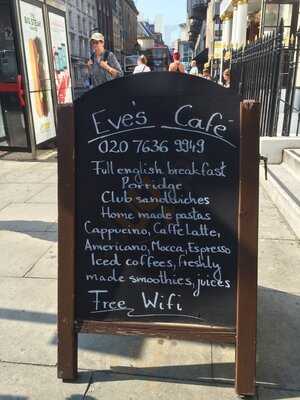 Eve's Café
020 7636 9949
Full english breakfast
Porridge
Club sanddiches
Home made pastas
Cappucino, Caffe Latte,
Americano, Mocca, Espresso
Iced coffees, freshly
made smoothies, juices
Free Wifi